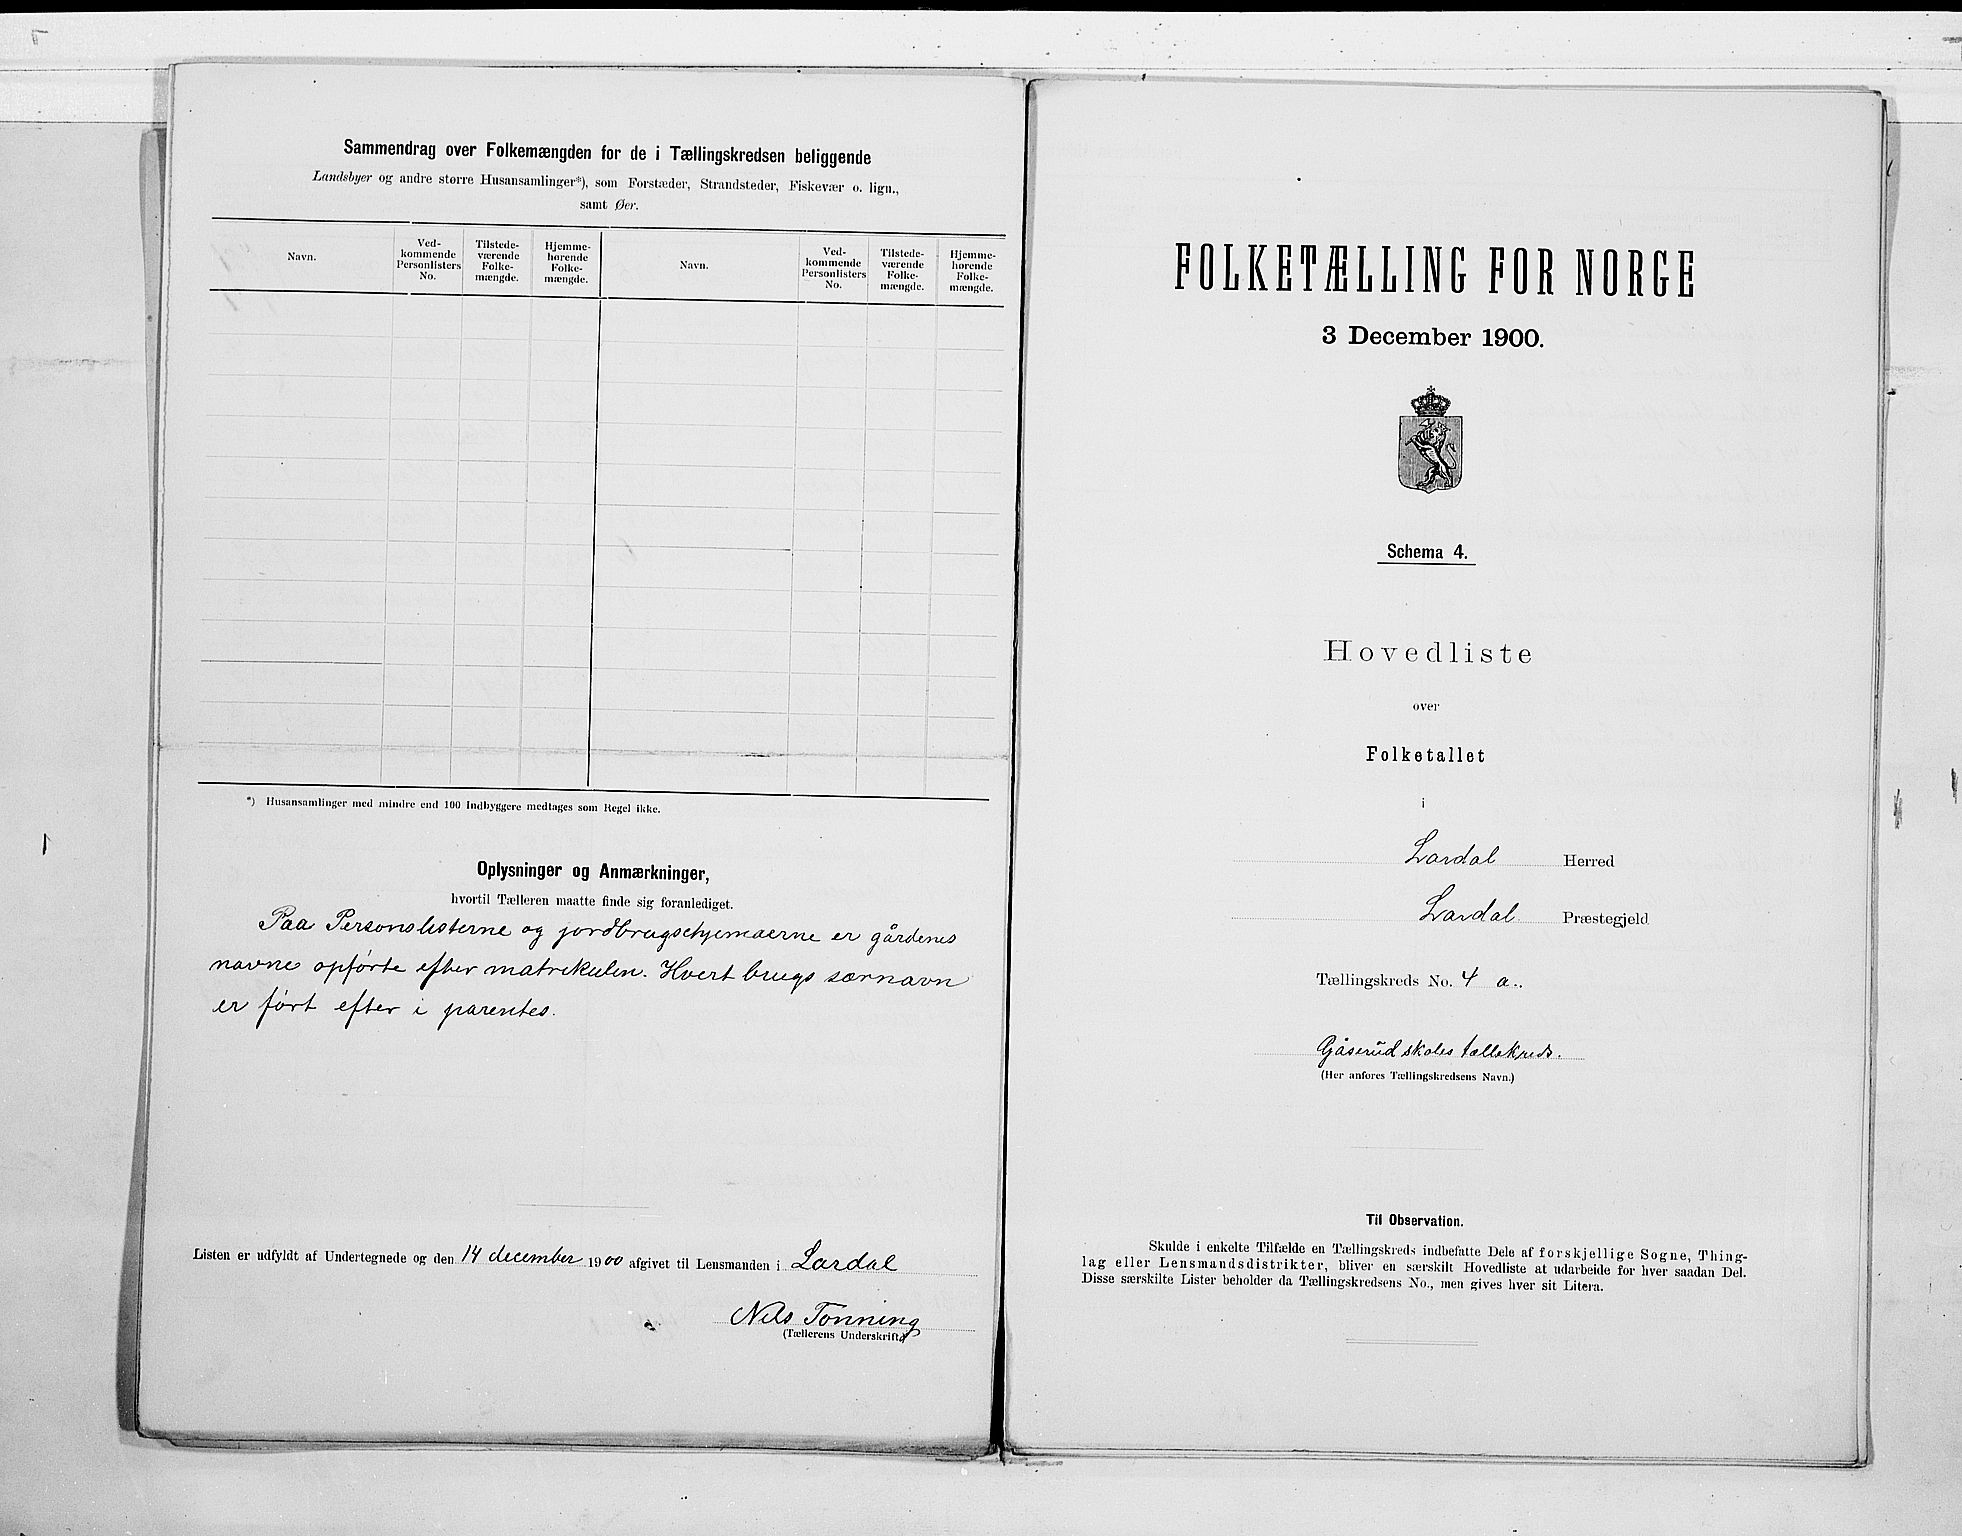 Sammendrag over Folkemængden for de i Tællingskredsen beliggende
Landsbyer og andre større Husansamlinger*), som Forstæder, Strandsteder, Fiskevær o. lign.,
samt Øer.
Navn.
Ved-
kommende
Personlisters
No.
Tilstede-
værende
Folke-
mængde.
Hjemme-
hørende
Folke-
mængde.
Navn.
Ved-
kommende
Personlisters
No.
Tilstede-
værende
Folke-
mængde.
Hjemme-
hørende
Folke-
mængde.
*) Husansamlinger med mindre end 100 Indbyggere medtages som Regel ikke.
Oplysninger og Anmærkninger,
hvortil Tælleren maatte finde sig foranlediget.
Paa Personslisterne og jordbrugschjemaerne er gårdenes
navne opførte efter matrikulen. Hvert brugs særnavn
er ført efter i parentes.
Listen er udfyldt af Undertegnede og den 14 december 1900 afgivet til Lensmanden i Lardal
Nils Tonning
(Tællerens Underskrift.)
FOLKETÆLLING FOR NORGE
3 December 1900.
Schema 4.
Hovedliste
over
Folketallet
i
Lardal Herred
Lardal Præstegjeld
Tællingskreds No. 4 a.
Gåserud skoles tællekreds.
(Her anføres Tællingskredsens Navn.)
Til Observation.
Skulde i enkelte Tilfælde en Tællingskreds indbefatte Dele af forskjellige Sogne, Thing-
lag eller Lensmandsdistrikter, bliver en særskilt Hovedliste at udarbeide for hver saadan Del.
Disse særskilte Lister beholder da Tællingskredsens No., men gives hver sit Litera.